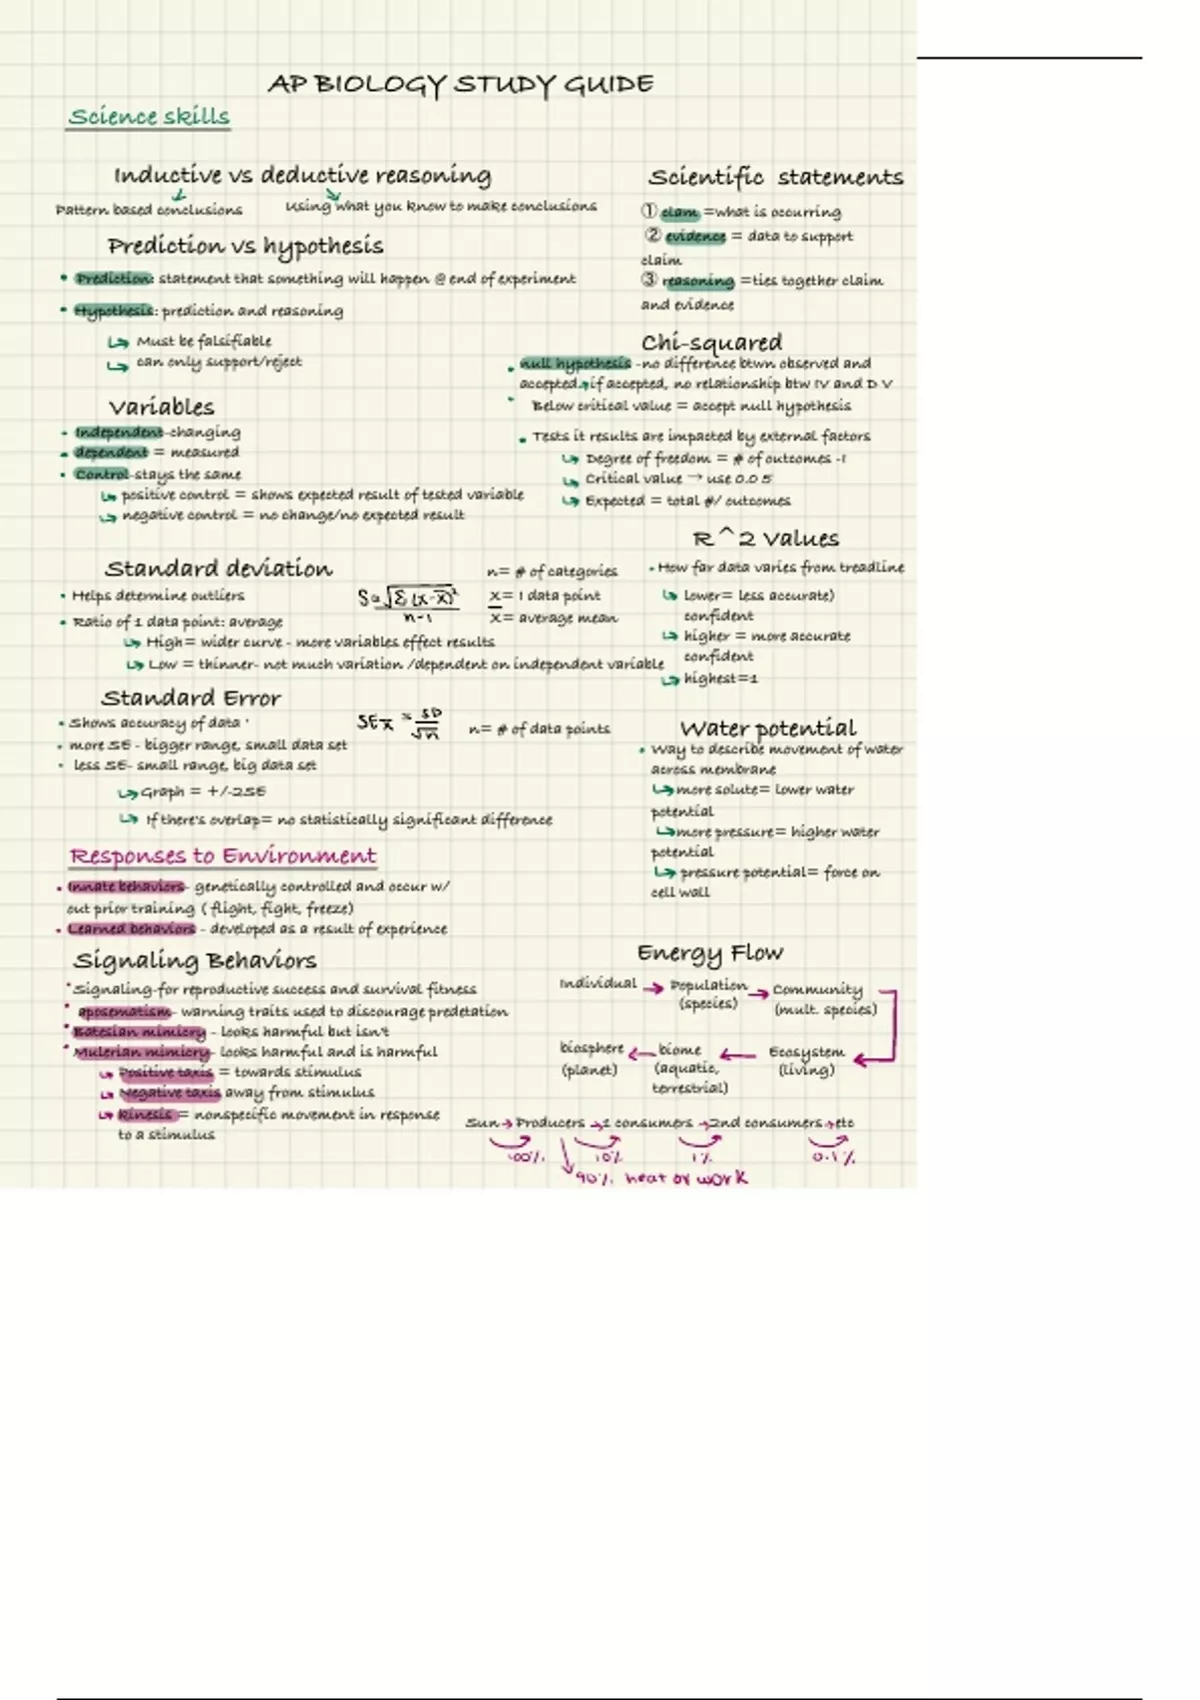 AP BIOLOGY STUDY GUIDE
Science skills
Inductive vs deductive reasoning
Pattern based conclusions
Using what you know to make conclusions
Prediction vs hypothesis
• Prediction: statement that something will happen @ end of experiment
• Hypothesis: prediction and reasoning
↳ Must be falsifiable
↳ can only support/reject
Variables
• Independent-changing
• dependent = measured
• Control-stays the same
↳ positive control = shows expected result of tested variable
↳ negative control = no change/no expected result
Scientific statements
① clam =what is occurring
② evidence = data to support
claim
③ reasoning =ties together claim
and evidence
Chi-squared
• null hypothesis -no difference btwn observed and
accepted→if accepted, no relationship btw IV and D V
• Below critical value = accept null hypothesis
• Tests it results are impacted by external factors
↳ Degree of freedom = # of outcomes -1
↳ Critical value → use 0.05
↳ Expected = total #/ outcomes
Standard deviation
• Helps determine outliers
• Ratio of 1 data point: average
↳ High= wider curve - more variables effect results
↳ Low = thinner- not much variation /dependent on independent variable
S=√Σ(x-x̄)²
n-1
n= # of categories
x= 1 data point
x̄= average mean
R^2 Values
• How far data varies from treadline
↳ lower= less accurate)
confident
↳ higher = more accurate
confident
↳ highest=1
Standard Error
• Shows accuracy of data
• more SE - bigger range, small data set
• less SE- small range, big data set
↳ Graph = +/-2SE
↳ If there's overlap= no statistically significant difference
SEx̄ = SD
√n
n= # of data points
Water potential
• Way to describe movement of water
across membrane
↳more solute= lower water
potential
↳more pressure= higher water
potential
↳ pressure potential= force on
cell wall
Responses to Environment
• Innate behaviors- genetically controlled and occur w/
out prior training ( flight, fight, freeze)
• Learned behaviors - developed as a result of experience
Signaling Behaviors
• Signaling-for reproductive success and survival fitness
• aposematism- warning traits used to discourage predetation
• Batesian mimicry - looks harmful but isn't
• Mulerian mimicry- looks harmful and is harmful
↳ Positive taxis = towards stimulus
↳ Negative taxis away from stimulus
↳ kinesis = nonspecific movement in response
to a stimulus
Energy Flow
Individual → Population → Community
(species) (mult. species)
biosphere ← biome ← Ecosystem
(planet) (aquatic, (living)
terrestrial)
Sun→Producers →1 consumers →2nd consumers→etc
100% 10% 1% 0.1%
90% heat or work